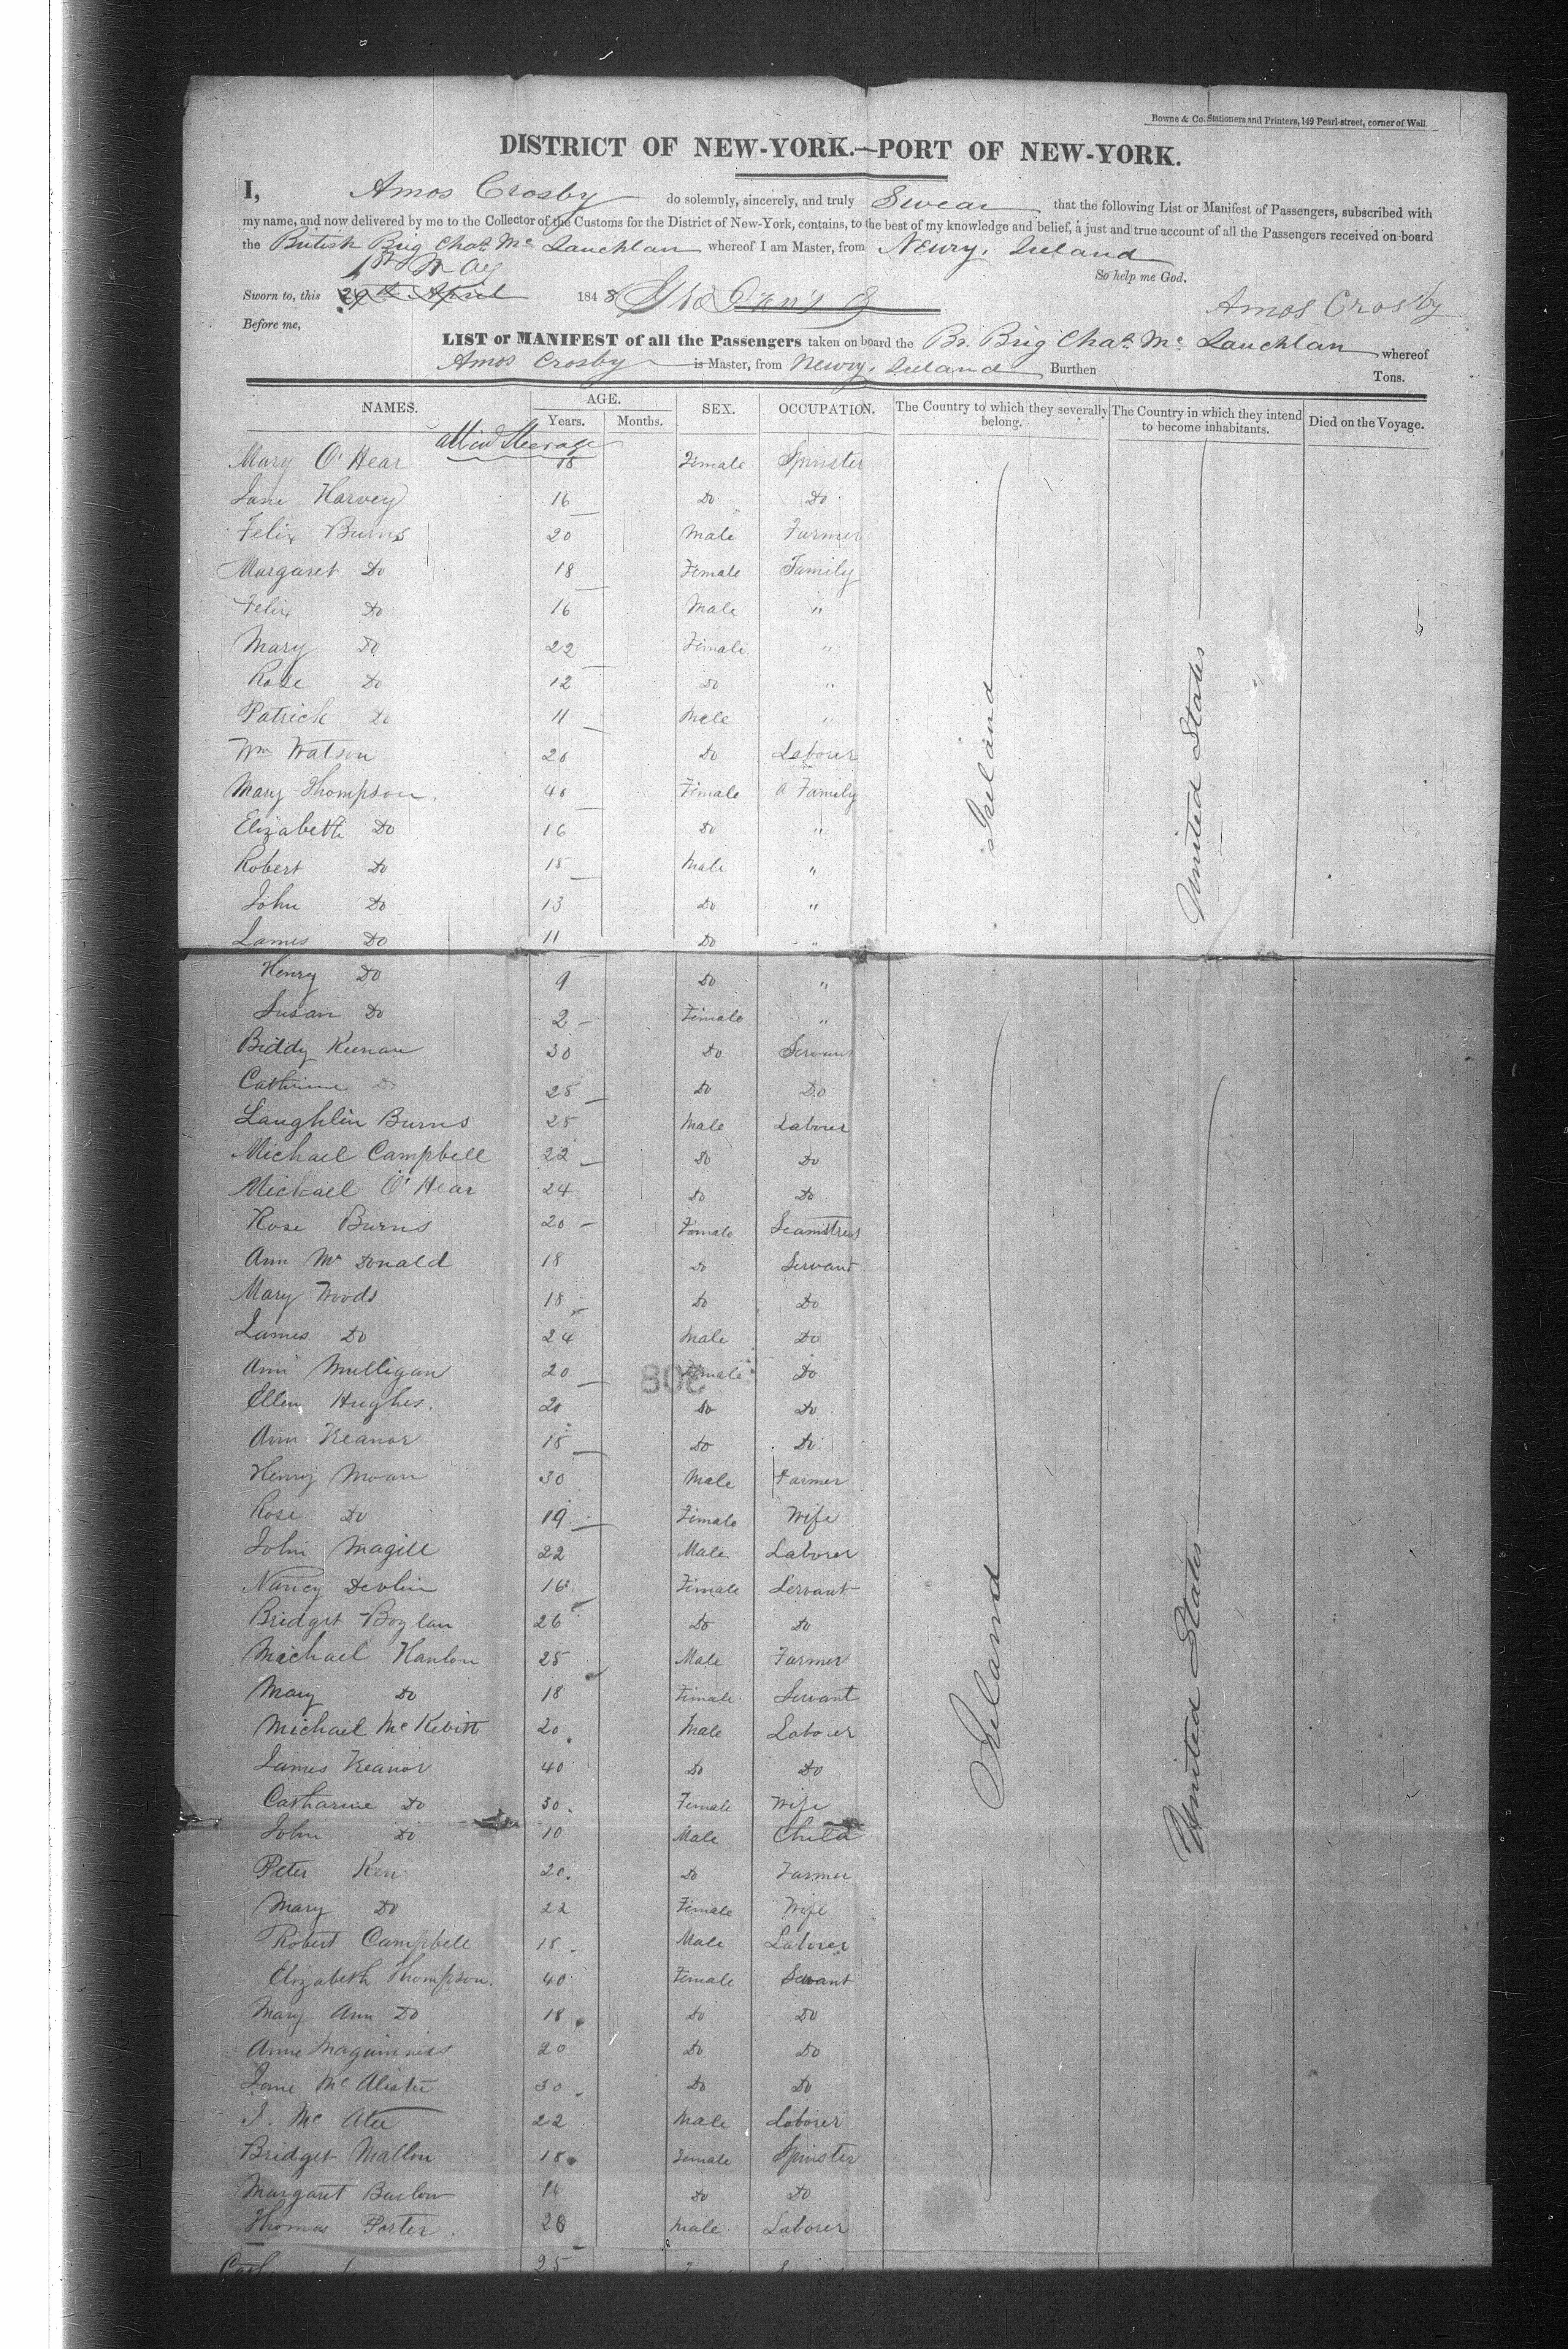 Bowne & Co. Stationers and Printers, 149 Pearl-street, corner of Wall.
DISTRICT OF NEW-YORK.—PORT OF NEW-YORK.
I, Amos Crosby do solemnly, sincerely, and truly Swear that the following List or Manifest of Passengers, subscribed with
my name, and now delivered by me to the Collector of the Customs for the District of New-York, contains, to the best of my knowledge and belief, a just and true account of all the Passengers received on board
the British Brig Chas. Mc Lauchlan whereof I am Master, from Newry, Ireland
So help me God.
1st May
Sworn to, this 29th April 1848
Amos Crosby
Before me,
LIST or MANIFEST of all the Passengers taken on board the Br. Brig Chas. Mc Lauchlan whereof
Amos Crosby is Master, from Newry, Ireland Burthen Tons.
NAMES. AGE. Years. Months. SEX. OCCUPATION. The Country to which they severally belong. The Country in which they intend to become inhabitants. Died on the Voyage.
all in Steerage
Mary O'Hear 18 Female Spinster
Jane Harvey 16 Do Do
Felix Burns 20 Male Farmer
Margaret Do 18 Female Family
Felix Do 16 Male "
Mary Do 22 Female "
Rose Do 12 Do "
Patrick Do 11 Male "
Wm Watson 20 Do Laborer
Mary Thompson. 40 Female a Family
Elizabeth Do 16 Do "
Robert Do 15 Male "
John Do 13 Do "
James Do 11 Do "
Ireland
United States
Henry Do 9 Do "
Susan Do 2 Female "
Biddy Keenan 30 Do Servant
Cathrine Do 25 Do Do
Laughlin Burns 25 Male Laborer
Michael Campbell 22 Do Do
Michael O'Hear 24 Do Do
Rose Burns 20 Female Seamstress
Ann Mc Donald 18 Do Servant
Mary Woods 18 Do Do
James Do 24 Male Do
Ann Mulligan 20 Female Do
308
Ellen Hughes. 20 Do Do
Ann Keanor 15 Do Do
Henry Moan 30 Male Farmer
Rose Do 19 Female Wife
John Magill 22 Male Laborer
Nancy Devlin 16 Female Servant
Bridget Boylan 26 Do Do
Michael Hanlon 25 Male Farmer
Mary Do 18 Female Servant
Michael Mc Kevitt 20 Male Laborer
James Keanor 40 Do Do
Catharine Do 30 Female Wife
John Do 10 Male Child
Peter Kerr 20 Do Farmer
Mary Do 22 Female Wife
Robert Campbell 18 Male Laborer
Elizabeth Thompson. 40 Female Servant
Mary Ann Do 18 Do Do
Anne Maguinness 20 Do Do
Jane Mc Alister 30 Do Do
J. Mc Atee 22 Male Laborer
Bridget Mallon 18 Female Spinster
Margaret Barlow 16 Do Do
Thomas Porter. 20 Male Laborer
25
Ireland
United States